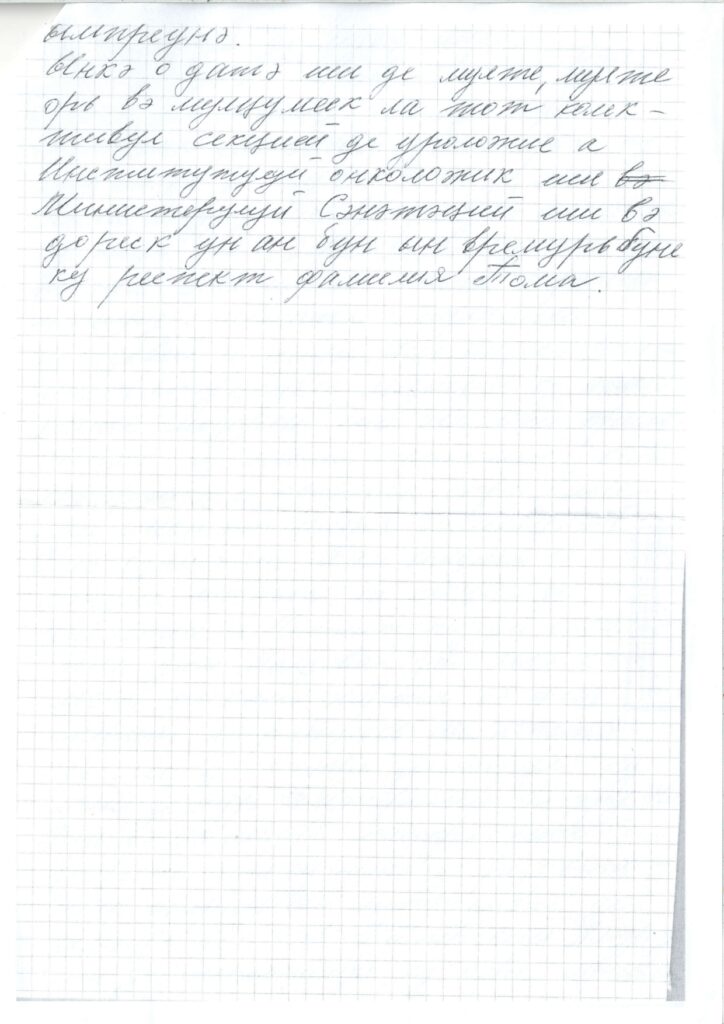 ымпреунэ.
Ынкэ о датэ ши де мулте, мулте
орь вэ мулцумеск ла тот колек-
тивул секцией де уроложие а
Институтулуй онколожик ши вэ
Министерулуй Сэнэтэций ши вэ
дореск ун ан бун ын времурь буне
ку респект фамилия Тома.